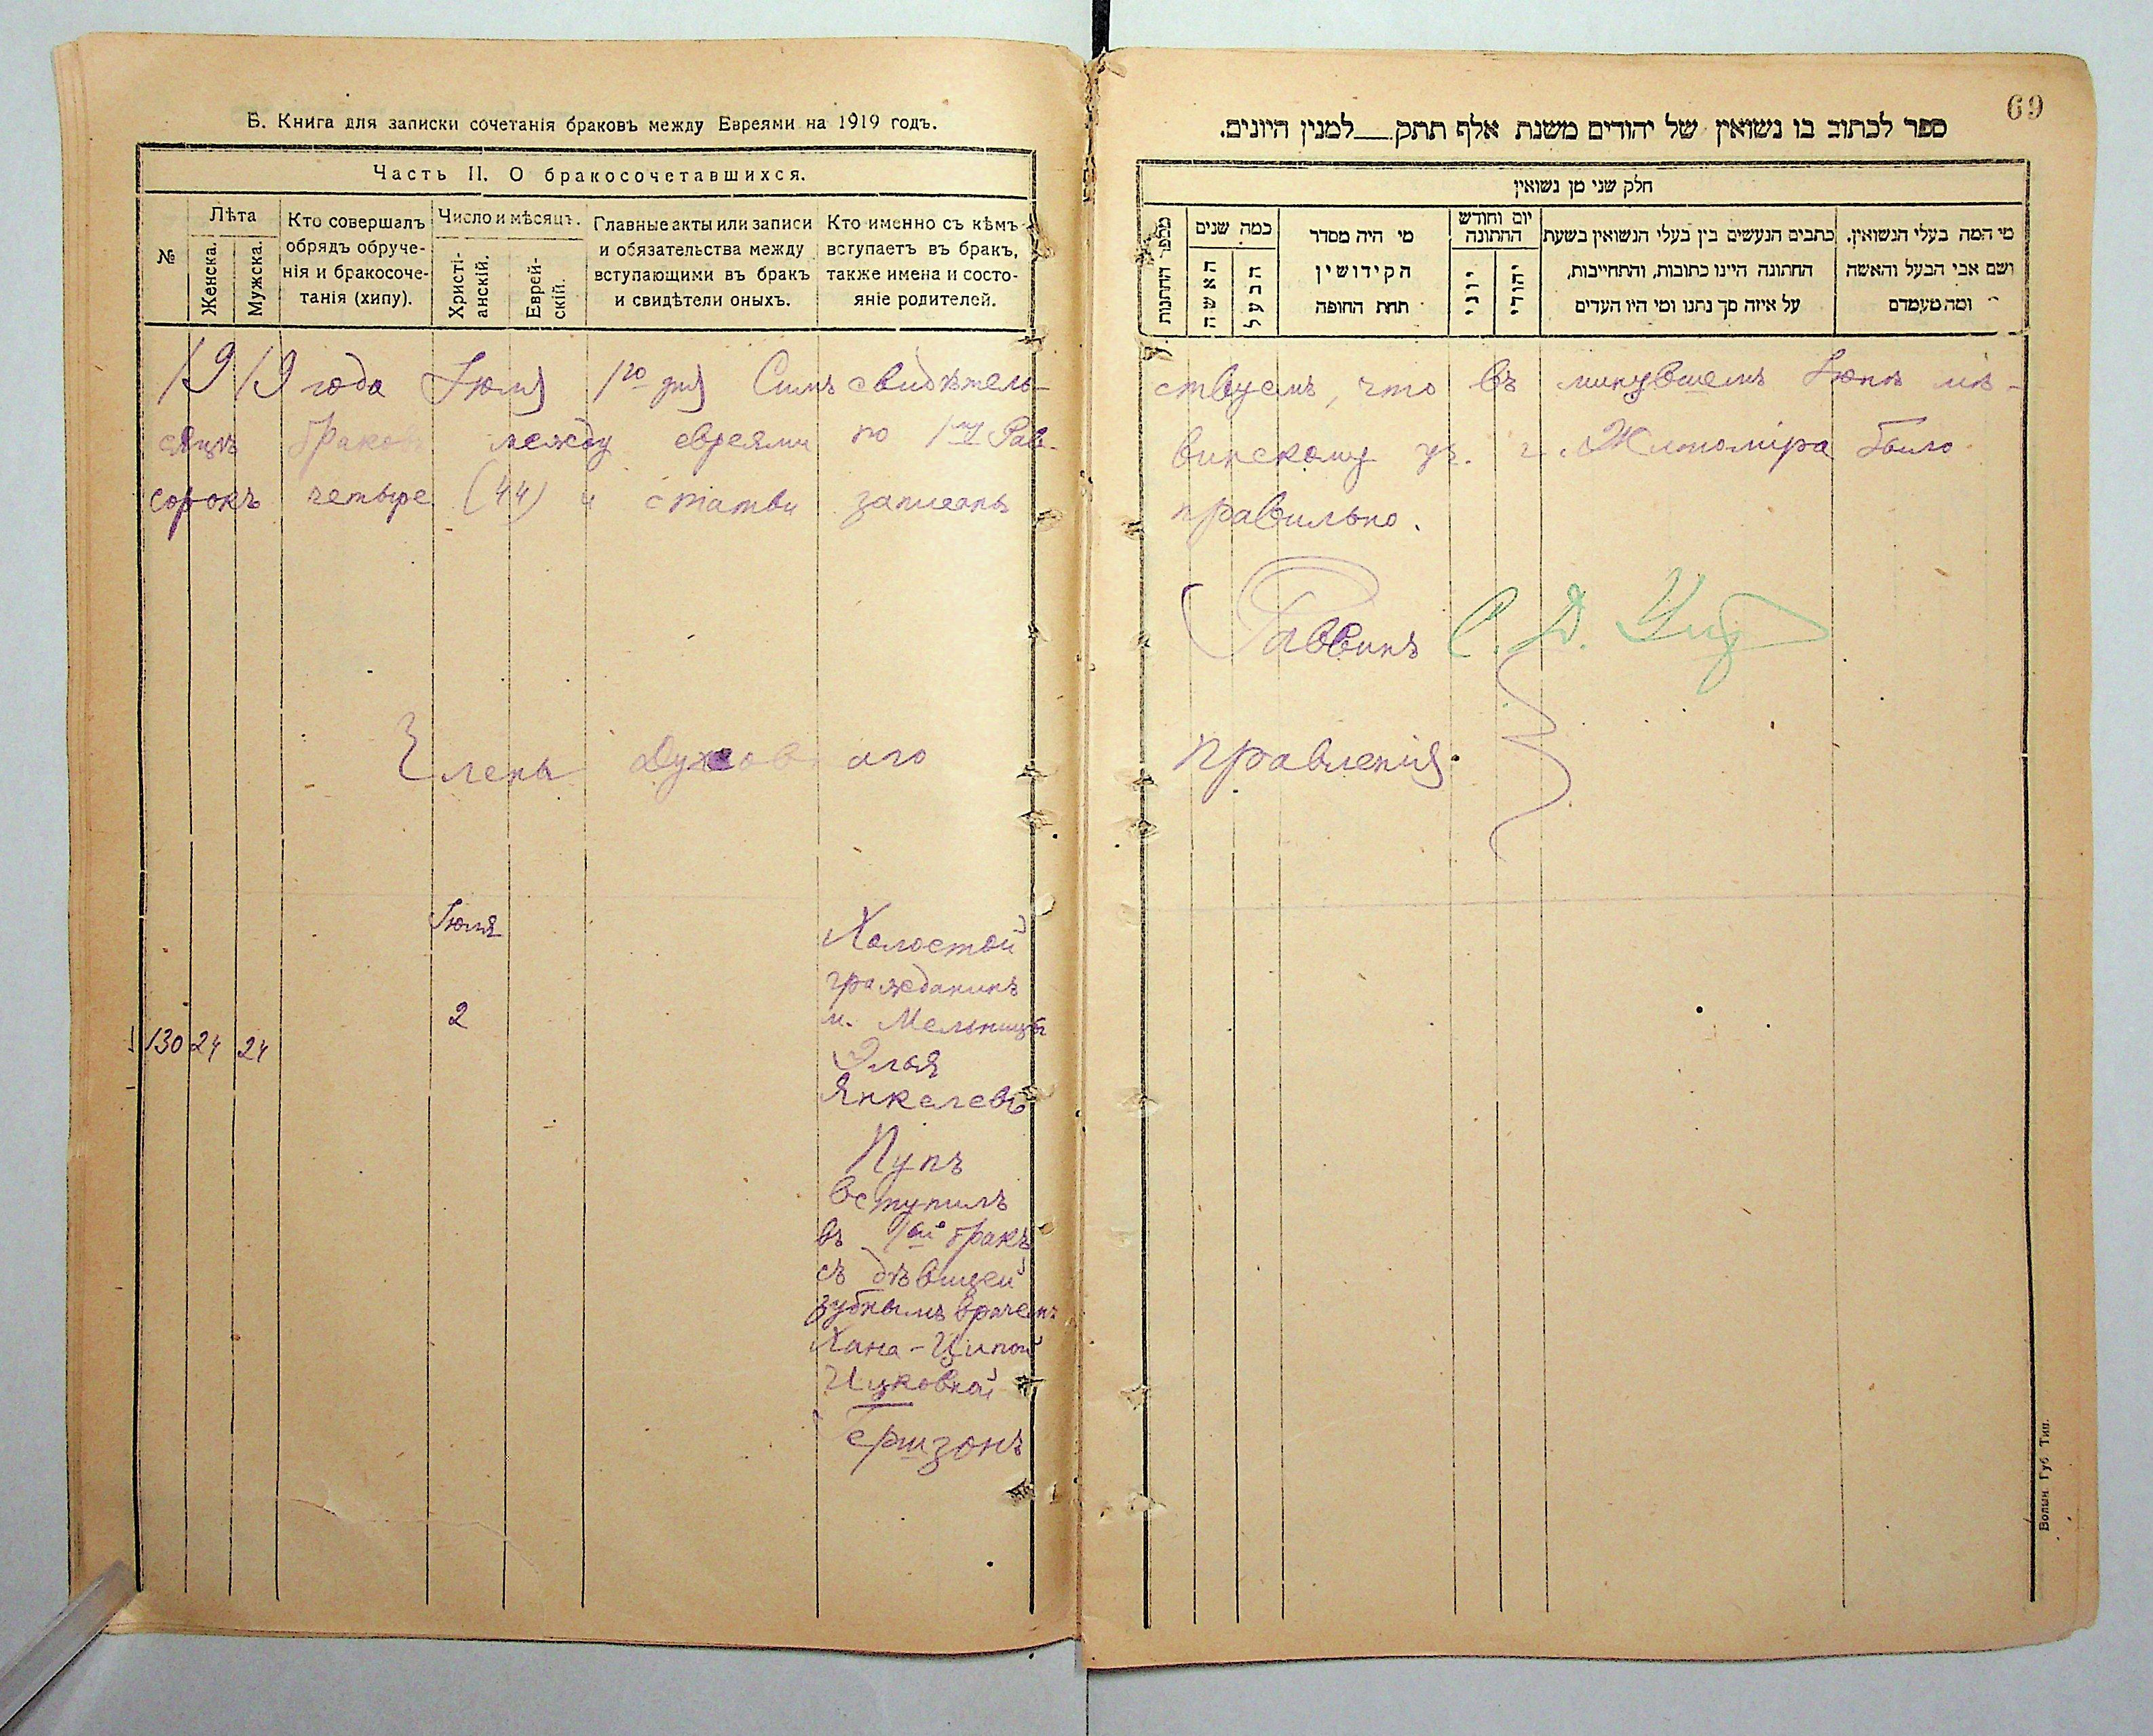 Б. Книга для записки сочетанія браковъ между Евреями на 1919 годъ.
Часть II. О бракосочетавшихся.
№
Лѣта
Женска.
Мужска.
Кто совершалъ
обрядъ обруче-
нія и бракосоче-
танія (хипу).
Число и мѣсяцъ.
Христі-
анскій.
Еврей-
скій.
Главные акты или записи
и обязательства между
вступающими въ бракъ
и свидѣтели оныхъ.
Кто именно съ кѣмъ
вступаетъ въ бракъ,
также имена и состо-
яніе родителей.
69
ספר לכתוב בו נשואין של יהודים משנת אלף תתק__למנין היונים.
חלק שני מן נשואין
מספר החתונות
כמה שנים
האשה
הבעל
מי היה מסדר
הקידושין
תחת החופה
יום וחודש
החתונה
יוני
יהודי
כתבים הנעשים בין בעלי הנשואין בשעת
החתונה היינו כתובות, והתחייבות,
על איזה סך נתנו ומי היו העדים
מי המה בעלי הנשואין,
ושם אבי הבעל והאשה
ומה מעמדם
1919 года Іюля 1го дня Симъ свидѣтель-
ствуемъ, что въ минувшемъ Іюнѣ мѣ-
сяцѣ браковъ между евреями по 1му Рав-
винскому уч. г. Житоміра было
сорокъ четыре (44) и статьи записаны
правильно.
Раввинъ
Члены Духовнаго
Правленія
Іюля
2
130 24 24
Холостой
гражданинъ
м. Мельницы
Элья
Янкелевъ
Пупъ
вступилъ
въ 1ый бракъ
съ дѣвицей
зубнымъ врачемъ
Хана-Ципой
Ицковной
Гершзонъ
Волын. Губ. Тип.